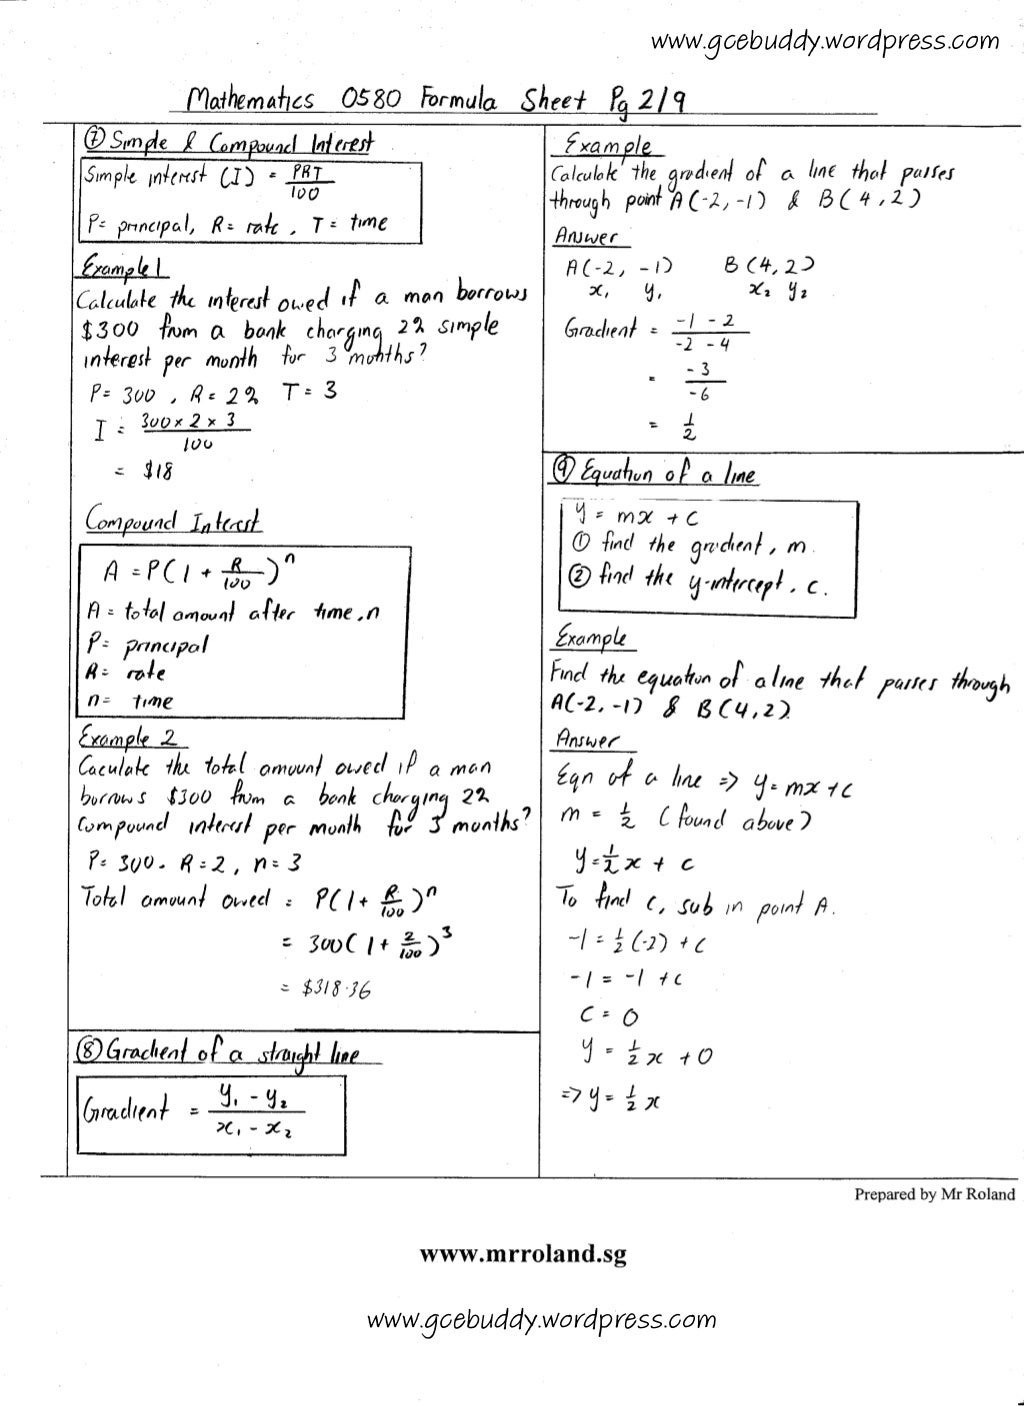 www.gcebuddy.wordpress.com
Mathematics 0580 Formula Sheet Pg 2/9
⑦ Simple & Compound Interest
Simple interest (I) = PRT/100
P= principal, R= rate, T= time
Example 1
Calculate the interest owed if a man borrows
$300 from a bank charging 2% simple
interest per month for 3 months?
P= 300, R= 2% T= 3
I = 300 x 2 x 3 / 100
= $18
Compound Interest
A = P(1 + R/100)^n
A = total amount after time, n
P= principal
R= rate
n= time
Example 2
Caculate the total amount owed if a man
borrows $300 from a bank charging 2%
compound interest per month for 3 months?
P= 300. R=2, n=3
Total amount owed = P(1+ R/100)^n
= 300(1+ 2/100)^3
= $318.36
⑧ Gradient of a straight line
Gradient = y₁ - y₂ / x₁ - x₂
Example
Calculate the gradient of a line that passes
through point A(-2,-1) & B(4,2)
Answer
A(-2, -1) B(4,2)
x₁ y₁ x₂ y₂
Gradient = -1 - 2 / -2 - 4
= -3 / -6
= 1/2
⑨ Equation of a line
y = mx + c
① find the gradient, m.
② find the y-intercept, c.
Example
Find the equation of a line that passes through
A(-2,-1) & B(4,2).
Answer
Eqn of a line => y=mx+c
m = 1/2 (found above)
y=1/2x + c
To find c, sub in point A.
-1 = 1/2(-2) + c
-1 = -1 + c
c = 0
y = 1/2x + 0
=> y = 1/2x
Prepared by Mr Roland
www.mrroland.sg
www.gcebuddy.wordpress.com